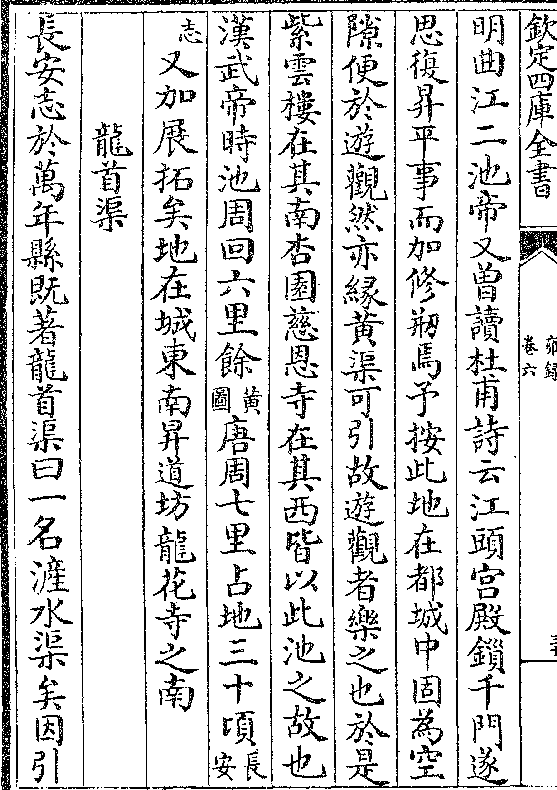 欽定四庫全書
雍録
卷六
明曲江二池帝又曽讀杜甫詩云江頭宫殿鎻千門遂
思復昇平事而加修剏焉予按此地在都城中固為空
隙便於遊觀然亦緣黄渠可引故遊觀者樂之也於是
紫雲樓在其南杏園慈恩寺在其西皆以此池之故也
漢武帝時池周回六里餘黄圖唐周七里占地三十頃長安
志又加展拓矣地在城東南昇道坊龍花寺之南
龍首渠
長安志於萬年縣既著龍首渠曰一名滻水渠矣因引